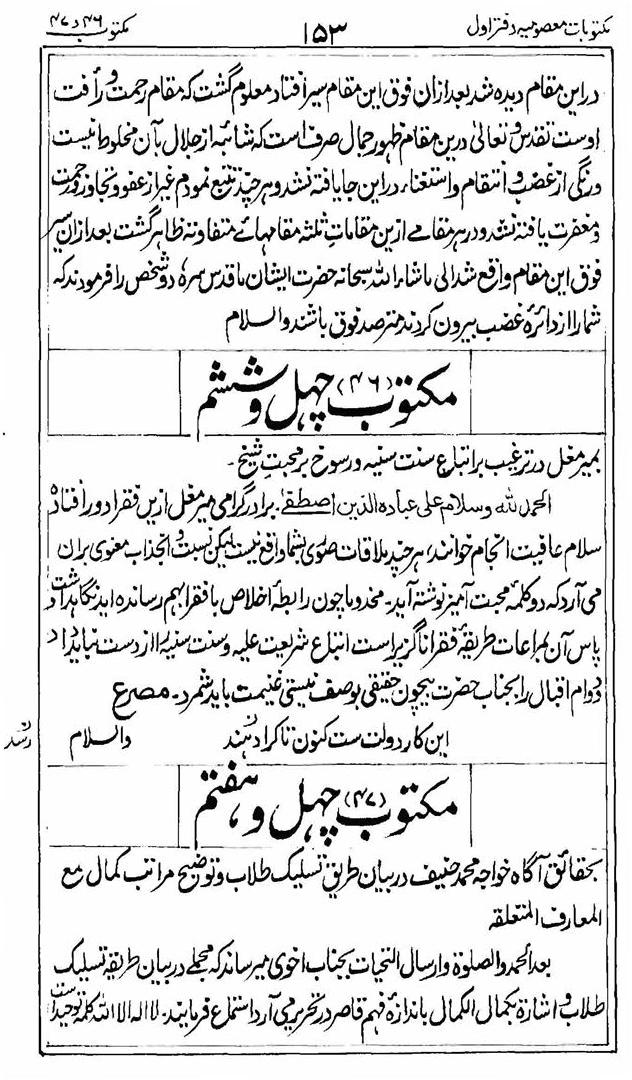 مکتوبات معصومیہ دفتر اول ۱۵۳ مکتوب ۴۶ و ۴۷
دراین مقام دیده شد بعد ازان فوق این مقام سیر افتاد معلوم گشت که مقام رحمت و رأفت
اوست تقدس و تعالی درین مقام ظهور جمال صرف است که شائبه از جلال بآن مخلوط نیست
و رنگی از غضب و انتقام و استغناء دراین جا یافته نشد و هر چند تتبع نمودم غیر از عفو و تجاوز و رحمت
و مغفرت یافته نشد و در هر مقامے ازین مقامات ثلثه مقامهائے متفاوته ظاهر گشت بعد ازان سیر
فوق این مقام واقع شد الی ماشاء الله سبحانه حضرت ایشان ما قدس سره دو شخص را فرمودند که
شما را از دائرهٔ غضب بیرون کردند مترصد فوق باشند والسلام
مکتوب (۴۶) چهل و ششم
بمیر مغل در ترغیب بر اتباع سنت سنیه و رسوخ بر محبت شیخ۔
الحمد لله وسلام علی عباده الذین اصطفیٰ۔ برادر گرامی میر مغل ازیں فقرا دور افتاده
سلام عافیت انجام خوانند، هر چند ملاقات صوری بشما واقع نیست لیکن نسبت و انجذاب معنوی بران
می آرد که دو کلمهٔ محبت آمیز نوشته آید۔ مخدوما چون رابطهٔ اخلاص با فقرا بهم رسانده اید نگاهداشت و
پاس آن بمراعات طریقهٔ فقرا ناگزیر است اتباع شریعت علیه و سنت سنیه را از دست نباید داد
و دوام اقبال را بجناب حضرت بیچون حقیقی بوصف نیستی غنیمت باید شمرد۔ مصرع
این کار دولت ست کنون تا کرا دهند والسلام
بحقائق آگاه خواجه محمد حنیف در بیان طریق تسلیک طلاب و توضیح مراتب کمال مع
المعارف المتعلقه
بعد الحمد والصلوة و ارسال التحیات بجناب اخوی میرساند که مجملے در بیان طریقهٔ تسلیک
طلاب و اشارة بکمال الکمال باندازهٔ فهم قاصر در تحریر می آرد استماع فرمایند۔ لا اله الا الله کلمهٔ توحید است
مکتوب (۴۷) چهل و هفتم